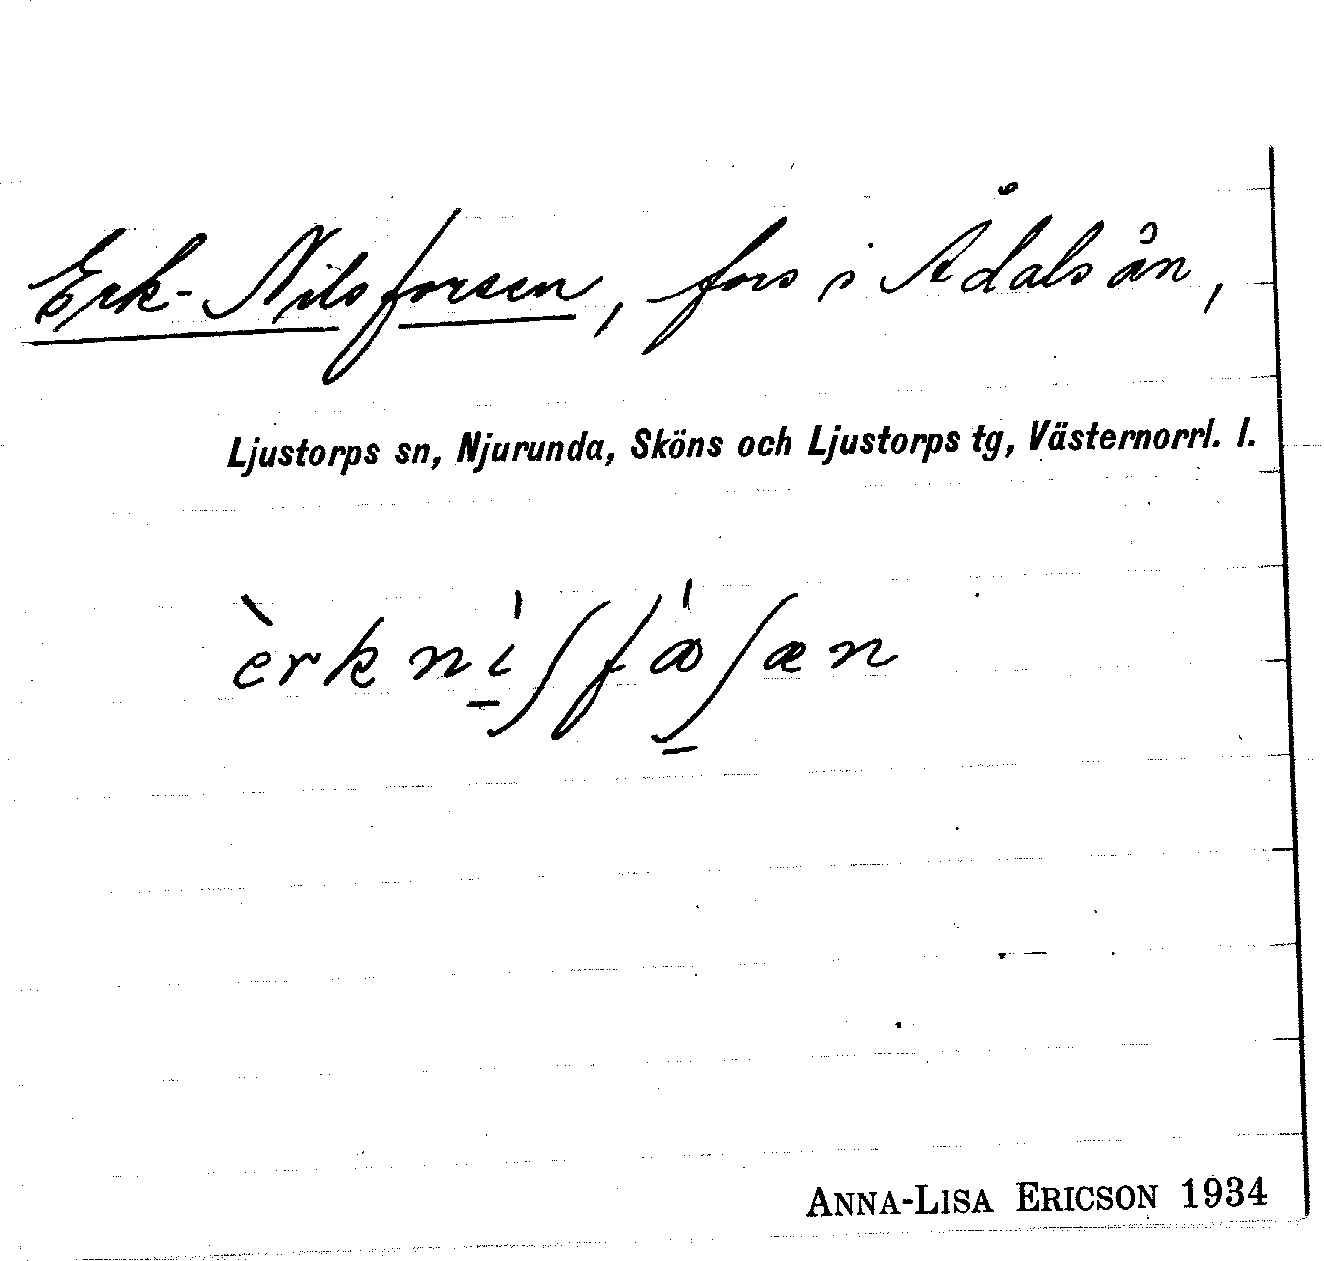 Erk-Nilsforsen, fors i Ådalsån,
Ljustorps sn, Njurunda, Sköns och Ljustorps tg, Västernorrl. l.
èrk ni̲ʃfæʃæn
ANNA-LISA ERICSON 1934